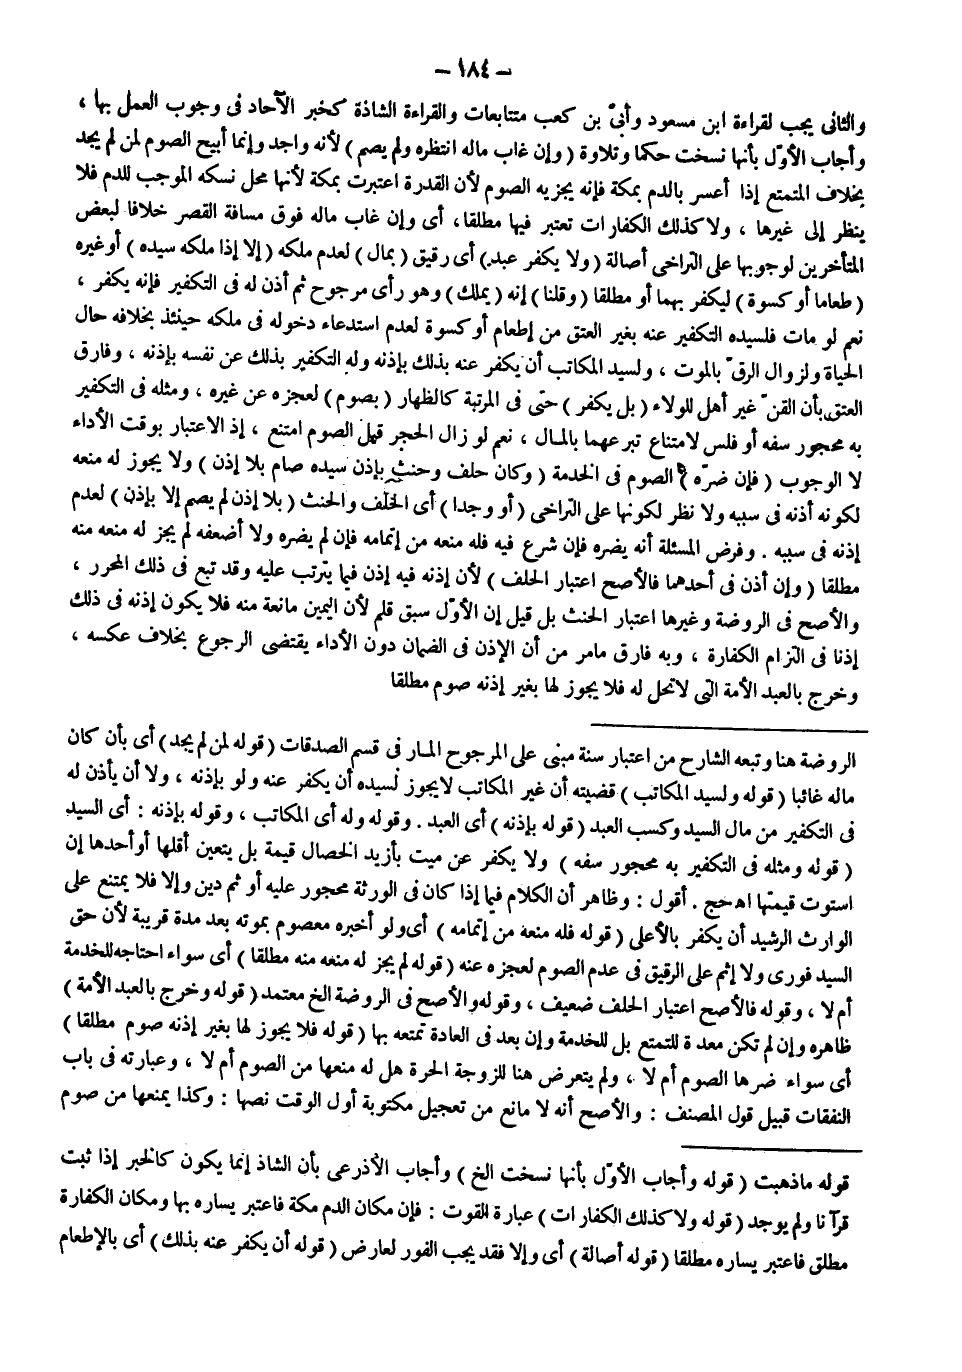 – ١٨٤ –
والثانى يجب لقراءة ابن مسعود وأبىّ بن كعب متتابعات والقراءة الشاذة كخبر الآحاد فى وجوب العمل بها ،
وأجاب الأوّل بأنها نسخت حكما وتلاوة ( وإن غاب ماله انتظره ولم يصم ) لأنه واجد وإنما أبيح الصوم لمن لم يجد
بخلاف المتمتع إذا أعسر بالدم بمكة فإنه يجزيه الصوم لأن القدرة اعتبرت بمكة لأنها محل نسكه الموجب للدم فلا
ينظر إلى غيرها ، ولا كذلك الكفارات تعتبر فيها مطلقا، أى وإن غاب ماله فوق مسافة القصر خلافا لبعض
المتأخرين لوجوبها على التراخى أصالة ( ولا يكفر عبد) أى رقيق ( بمال ) لعدم ملكه ( إلا إذا ملكه سيده ) أو غيره
( طعاما أو كسوة ) ليكفر بهما أو مطلقا ( وقلنا ) إنه ( يملك ) وهو رأى مرجوح ثم أذن له فى التكفير فإنه يكفر ،
نعم لو مات فلسيده التكفير عنه بغير العتق من إطعام أو كسوة لعدم استدعاء دخوله فى ملكه حينئذ بخلافه حال
الحياة ولزوال الرقّ بالموت ، ولسيد المكاتب أن يكفر عنه بذلك بإذنه وله التكفير بذلك عن نفسه بإذنه ، وفارق
العتق بأن القنّ غير أهل للولاء ( بل يكفر ) حتى فى المرتبة كالظهار ( بصوم ) لعجزه عن غيره ، ومثله فى التكفير
به محجور سفه أو فلس لامتناع تبرعهما بالمال ، نعم لو زال الحجر قبل الصوم امتنع ، إذ الاعتبار بوقت الأداء
لا الوجوب ( فإن ضرّه ) الصوم فى الخدمة ( وكان حلف وحنث بإذن سيده صام بلا إذن ) ولا يجوز له منعه
لكونه أذنه فى سببه ولا نظر لكونها على التراخى ( أو وجدا ) أى الحلف والحنث ( بلا إذن لم يصم إلا بإذن ) لعدم
إذنه فى سببه . وفرض المسئلة أنه يضره فإن شرع فيه فله منعه من إتمامه فإن لم يضره ولا أضعفه لم يجز له منعه منه
مطلقا ( وإن أذن فى أحدهما فالأصح اعتبار الحلف ) لأن إذنه فيه إذن فيما يترتب عليه وقد تبع فى ذلك المحرر ،
والأصح فى الروضة وغيرها اعتبار الحنث بل قيل إن الأوّل سبق قلم لأن اليمين مانعة منه فلا يكون إذنه فى ذلك
إذنا فى التزام الكفارة ، وبه فارق مامر من أن الإذن فى الضمان دون الأداء يقتضى الرجوع بخلاف عكسه ،
وخرج بالعبد الأمة التى لا تحل له فلا يجوز لها بغير إذنه صوم مطلقا
الروضة هنا وتبعه الشارح من اعتبار سنة مبنى على المرجوح المار فى قسم الصدقات ( قوله لمن لم يجد ) أى بأن كان
ماله غائبا ( قوله ولسيد المكاتب ) قضيته أن غير المكاتب لا يجوز لسيده أن يكفر عنه ولو بإذنه ، ولا أن يأذن له
فى التكفير من مال السيد وكسب العبد ( قوله بإذنه ) أى العبد . وقوله وله أى المكاتب ، وقوله بإذنه : أى السيد
( قوله ومثله فى التكفير به محجور سفه ) ولا يكفر عن ميت بأزيد الخصال قيمة بل يتعين أقلها أو أحدها إن
استوت قيمتها اهحج . أقول : وظاهر أن الكلام فيما إذا كان فى الورثة محجور عليه أو ثم دين وإلا فلا يمتنع على
الوارث الرشيد أن يكفر بالأعلى ( قوله فله منعه من إتمامه ) أى ولو أخبره معصوم بموته بعد مدة قريبة لأن حق
السيد فورى ولا إثم على الرقيق فى عدم الصوم لعجزه عنه ( قوله لم يجز له منعه منه مطلقا ) أى سواء احتاجه للخدمة
أم لا ، وقوله فالأصح اعتبار الحلف ضعيف ، وقوله والأصح فى الروضة الخ معتمد ( قوله وخرج بالعبد الأمة )
ظاهره وإن لم تكن معدة للتمتع بل للخدمة وإن بعد فى العادة تمتعه بها ( قوله فلا يجوز لها بغير إذنه صوم مطلقا )
أى سواء ضرها الصوم أم لا ، ولم يتعرض هنا للزوجة الحرة هل له منعها من الصوم أم لا ، وعبارته فى باب
النفقات قبيل قول المصنف : والأصح أنه لا مانع من تعجيل مكتوبة أول الوقت نصها : وكذا يمنعها من صوم
قوله ماذهبت ( قوله وأجاب الأوّل بأنها نسخت الخ ) وأجاب الأذرعى بأن الشاذ إنما يكون كالخبر إذا ثبت
قرآنا ولم يوجد ( قوله ولا كذلك الكفارات ) عبارة القوت : فإن مكان الدم مكة فاعتبر يساره بها ومكان الكفارة
مطلق فاعتبر يساره مطلقا ( قوله أصالة ) أى وإلا فقد يجب الفور لعارض ( قوله أن يكفر عنه بذلك ) أى بالإطعام